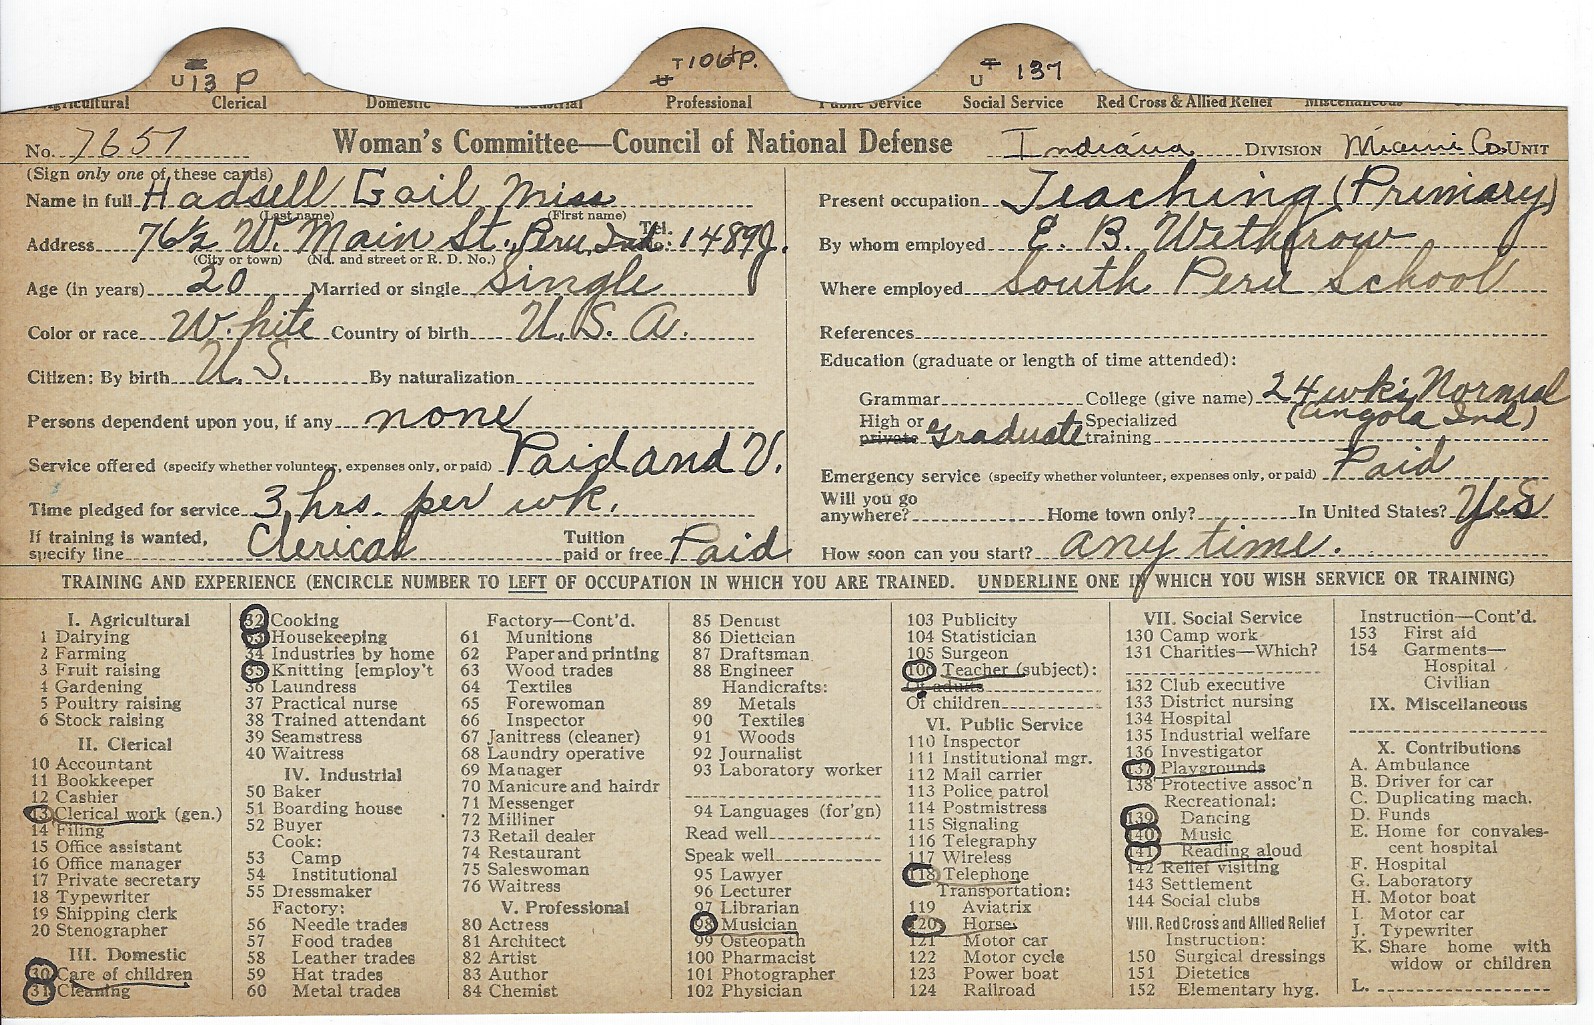 U 13 P
T 106 P.
U T 137
Agricultural Clerical Domestic Industrial Professional Public Service Social Service Red Cross & Allied Relief Miscellaneous
No. 7657 Woman's Committee—Council of National Defense Indiana DIVISION Miami Co. UNIT
(Sign only one of these cards)
Name in full Hadsell Gail Miss
(Last name) (First name)
Address 76½ W. Main St., Peru, Ind. Tel. 1489J.
(City or town) (No. and street or R. D. No.)
Age (in years) 20 Married or single Single
Color or race White Country of birth U. S. A.
Citizen: By birth U. S. By naturalization
Persons dependent upon you, if any none
Service offered (specify whether volunteer, expenses only, or paid) Paid and V.
Time pledged for service 3 hrs. per wk.
If training is wanted, specify line Clerical Tuition paid or free Paid
Present occupation Teaching (Primary)
By whom employed E. B. Wetherow
Where employed South Peru School
References
Education (graduate or length of time attended):
Grammar College (give name) 24 wks Normal
High or private graduate Specialized training (Angola Ind)
Emergency service (specify whether volunteer, expenses only, or paid) Paid
Will you go anywhere? Home town only? In United States? Yes
How soon can you start? any time.
TRAINING AND EXPERIENCE (ENCIRCLE NUMBER TO LEFT OF OCCUPATION IN WHICH YOU ARE TRAINED. UNDERLINE ONE IN WHICH YOU WISH SERVICE OR TRAINING)
I. Agricultural
1 Dairying
2 Farming
3 Fruit raising
4 Gardening
5 Poultry raising
6 Stock raising
II. Clerical
10 Accountant
11 Bookkeeper
12 Cashier
13 Clerical work (gen.)
14 Filing
15 Office assistant
16 Office manager
17 Private secretary
18 Typewriter
19 Shipping clerk
20 Stenographer
III. Domestic
30 Care of children
31 Cleaning
32 Cooking
33 Housekeeping
34 Industries by home
35 Knitting [employ't
36 Laundress
37 Practical nurse
38 Trained attendant
39 Seamstress
40 Waitress
IV. Industrial
50 Baker
51 Boarding house
52 Buyer
Cook:
53 Camp
54 Institutional
55 Dressmaker
Factory:
56 Needle trades
57 Food trades
58 Leather trades
59 Hat trades
60 Metal trades
Factory—Cont'd.
61 Munitions
62 Paper and printing
63 Wood trades
64 Textiles
65 Forewoman
66 Inspector
67 Janitress (cleaner)
68 Laundry operative
69 Manager
70 Manicure and hairdr
71 Messenger
72 Milliner
73 Retail dealer
74 Restaurant
75 Saleswoman
76 Waitress
V. Professional
80 Actress
81 Architect
82 Artist
83 Author
84 Chemist
85 Dentist
86 Dietician
87 Draftsman
88 Engineer
Handicrafts:
89 Metals
90 Textiles
91 Woods
92 Journalist
93 Laboratory worker
94 Languages (for'gn)
Read well
Speak well
95 Lawyer
96 Lecturer
97 Librarian
98 Musician
99 Osteopath
100 Pharmacist
101 Photographer
102 Physician
103 Publicity
104 Statistician
105 Surgeon
106 Teacher (subject):
Of adults
Of children
VI. Public Service
110 Inspector
111 Institutional mgr.
112 Mail carrier
113 Police patrol
114 Postmistress
115 Signaling
116 Telegraphy
117 Wireless
118 Telephone
Transportation:
119 Aviatrix
120 Horses
121 Motor car
122 Motor cycle
123 Power boat
124 Railroad
VII. Social Service
130 Camp work
131 Charities—Which?
132 Club executive
133 District nursing
134 Hospital
135 Industrial welfare
136 Investigator
137 Playgrounds
138 Protective assoc'n
Recreational:
139 Dancing
140 Music
141 Reading aloud
142 Relief visiting
143 Settlement
144 Social clubs
VIII. Red Cross and Allied Relief
Instruction:
150 Surgical dressings
151 Dietetics
152 Elementary hyg.
Instruction—Cont'd.
153 First aid
154 Garments—
Hospital
Civilian
IX. Miscellaneous
X. Contributions
A. Ambulance
B. Driver for car
C. Duplicating mach.
D. Funds
E. Home for convales-
cent hospital
F. Hospital
G. Laboratory
H. Motor boat
I. Motor car
J. Typewriter
K. Share home with
widow or children
L.